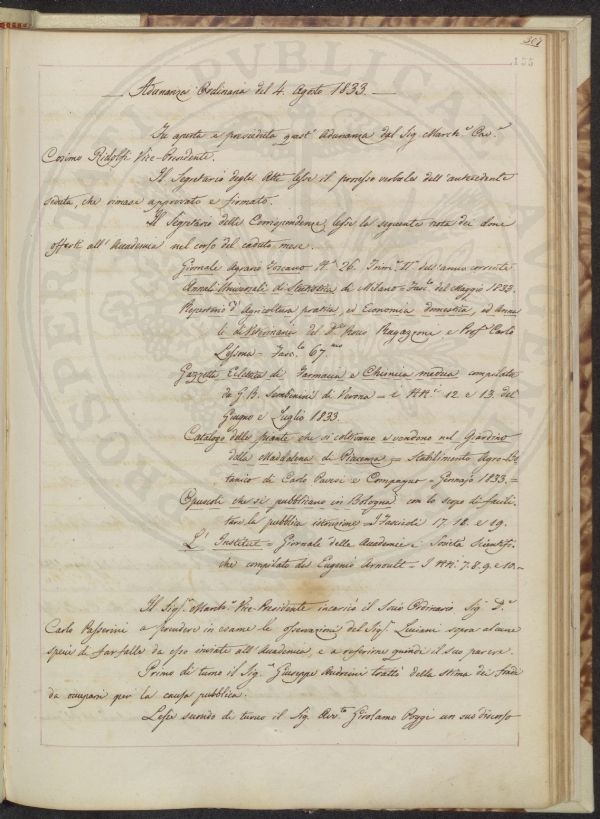 307
155
Adunanza Ordinaria del 4. Agosto 1833.
Fu aperta e presieduta quest' Adunanza dal Sig. March.e Cav.e
Cosimo Ridolfi Vice-Presidente.
Il Segretario degli Atti lesse il processo verbale dell' antecedente
seduta, che rimase approvato e firmato.
Il Segretario delle Corrispondenze lesse la seguente nota dei doni
offerti all' Accademia nel corso del caduto mese.
Giornale Agrario Toscano N.o 26. Trim.e II.o dell' anno corrente
Annali Universali di Statistica di Milano = Fasc.o del Maggio 1833.
Repertorio d' Agricoltura pratica, ed Economia domestica, ed Anna-
li di Veterinaria del D.re Rocco Ragazzoni e Prof.re Carlo
Lessona = Fasc.lo 67.mo
Gazzetta Ecletica di Farmacia e Chimica medica compilata
da G. B. Sembenini di Verona = i NN.i 12. e 13. del
Giugno e Luglio 1833.
Catalogo delle piante che si coltivano e vendono nel Giardino
della Maddalena di Piacenza = Stabilimento Agro-Bo-
tanico di Carlo Pavesi e Compagno = Gennajo 1833. =
Opuscoli che si pubblicano in Bologna con lo scopo di facili-
tare la pubblica istruzione = I Fascicoli 17. 18. e 19.
L' Institut = Giornale delle Accademie e Società Scientifi-
che compilato da Eugenio Arnoult = I NN.i 7. 8. 9. e 10. =
Il Sig.r March.e Vice-Presidente incaricò il Socio Ordinario Sig. D.e
Carlo Passerini a prendere in esame le osservazioni del Sig.r Luciani sopra alcune
specie di farfalle da esso inviate all' Accademia, e a referirne quindi il suo parere.
Primo di turno il Sig.e Giuseppe Andreini trattò della stima dei fondi
da occuparsi per la causa pubblica.
Lesse secondo di turno il Sig. Avv.to Girolamo Poggi un suo discorso
PROSPERITATI PUBLICAE AUGENDAE